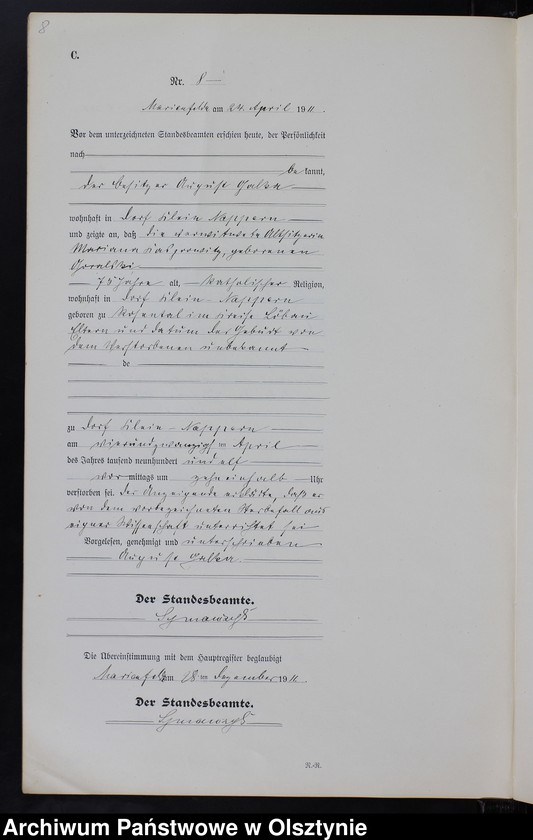 8
C.
Nr. 8
Marienfelde am 24. April 1911.
Vor dem unterzeichneten Standesbeamten erschien heute, der Persönlichkeit
nach
bekannt,
der Besitzer August Galka
wohnhaft in Dorf Klein Nappern
und zeigte an, daß die verwitwete Altsitzerin
Mariana geborenen
Goralski
75 Jahre alt, katholischer Religion,
wohnhaft in Dorf Klein-Nappern
geboren zu Rosental im Kreise Löbau
Eltern und Datum der Geburt von
dem Verstorbenen unbekannt
de
zu Dorf Klein-Nappern
am vierundzwanzigs ten April
des Jahres tausend neunhundert und elf
vor mittags um zehneinhalb Uhr
verstorben sei. Der Anzeigende erklärte, daß er
von dem vorbezeichneten Sterbefall aus
eigner Wissenschaft unterrichtet sei
Vorgelesen, genehmigt und unterschrieben
August Galka
Der Standesbeamte.
Die Übereinstimmung mit dem Hauptregister beglaubigt
Marienfelde am ten Dezember 1911
Der Standesbeamte.
N.-R.
Archiwum Państwowe w Olsztynie